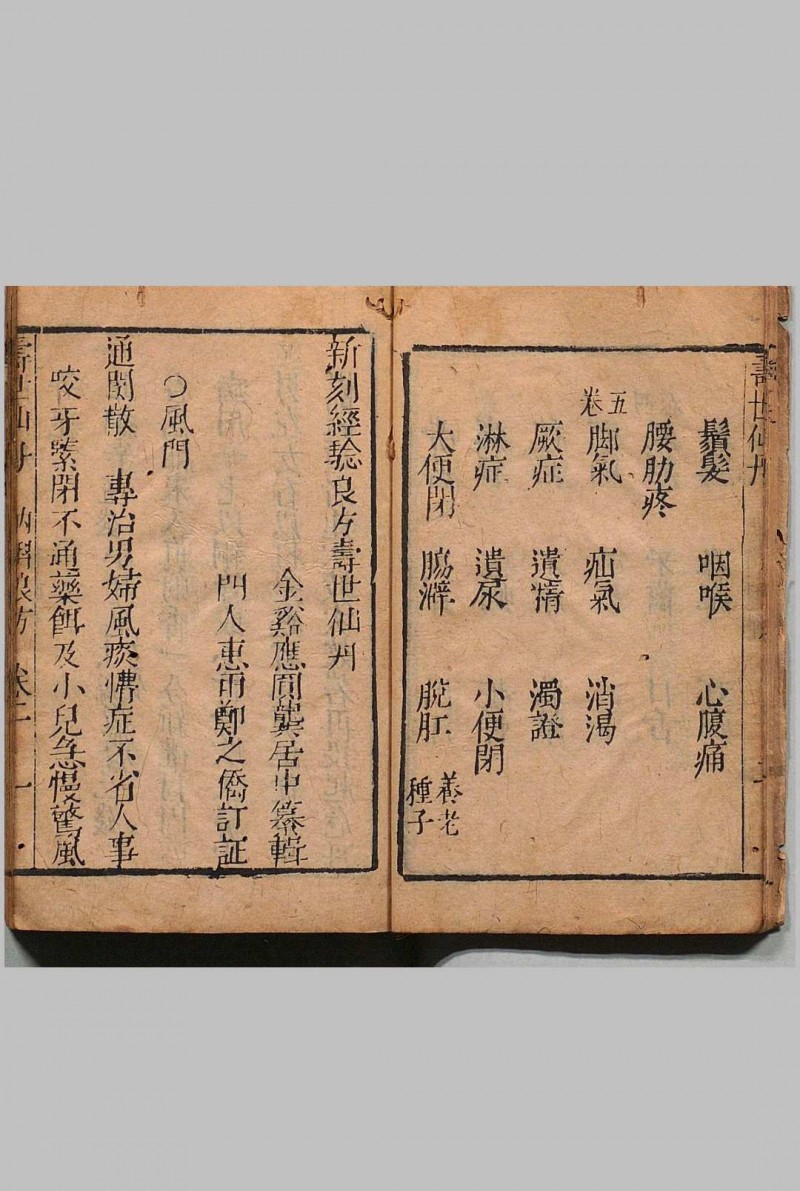 壽世仙丹
鬚髮 咽喉 心腹痛
腰肋疼
卷五
脚氣 疝氣 消渴
厥症 遺精 濁證
淋症 遺尿 小便閉
大便閉 腸澼 脫肛 養老
種子
新刻經驗良方壽世仙丹
金谿應圓龔居中纂輯
門人惠甫鄭之僑訂証
○風門
通関散 專治男婦風痰懵症不省人事
咬牙緊閉不通藥餌及小兒急慢驚風
壽世仙丹 內科良方 卷一 一